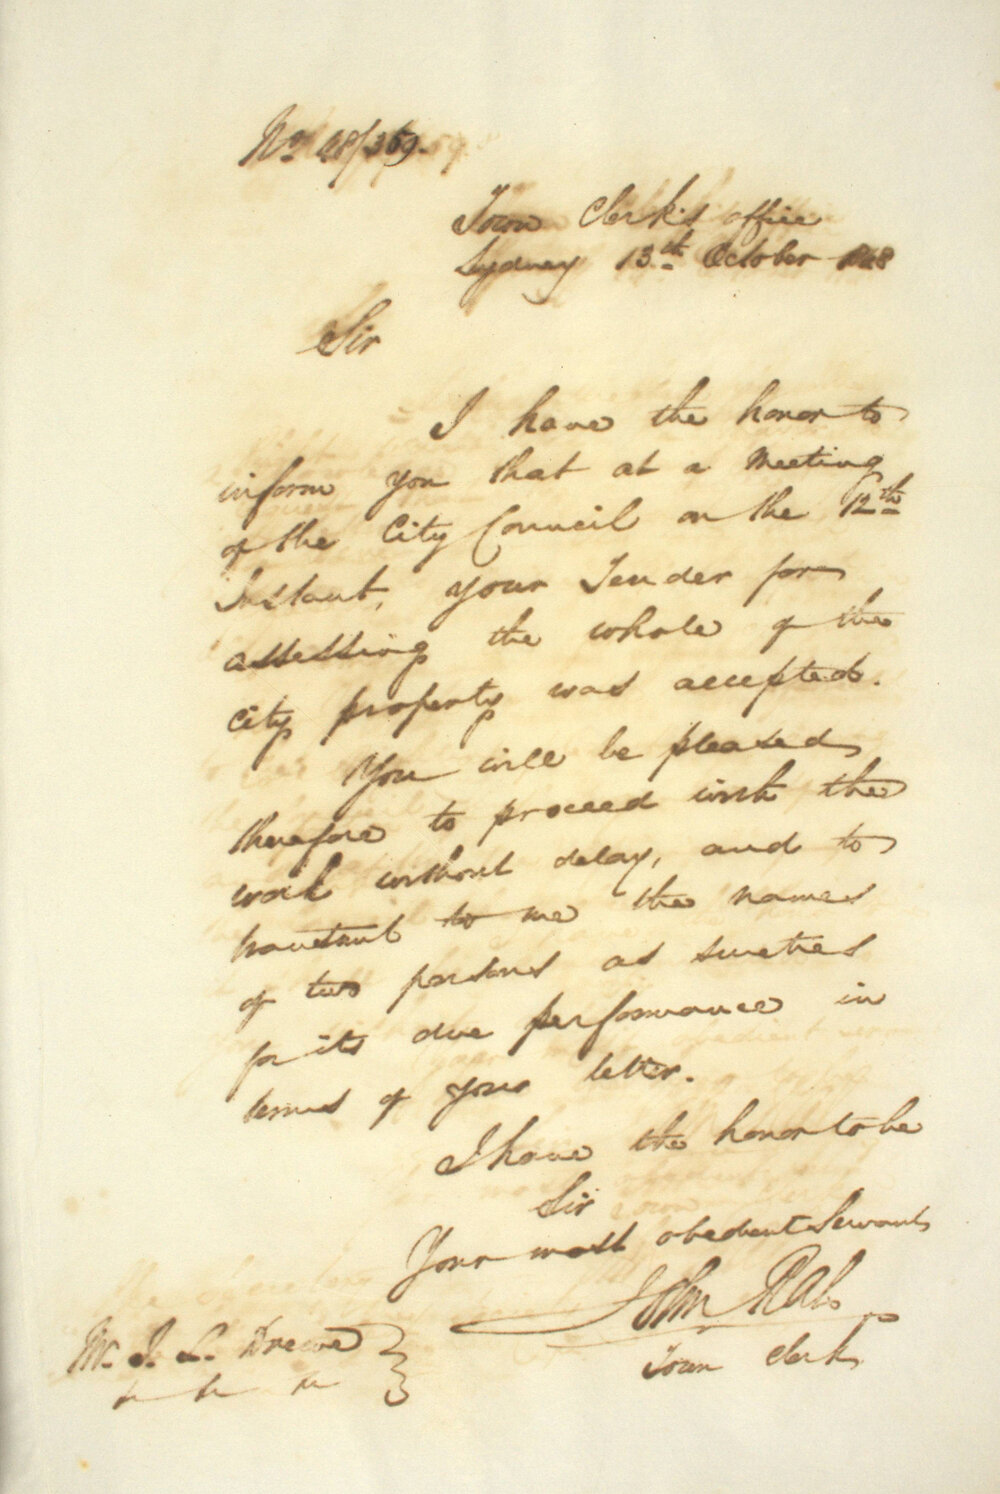 No 48/369.
Town Clerk's office
Sydney 13th October 1848
Sir
I have the honor to
inform you that at a Meeting
of the City Council on the 12th
Instant, your Tender for
assessing the whole of the
city property was accepted.
You will be pleased
therefore to proceed with the
work without delay, and to
transmit to me the names
of two persons as sureties
for its due performance in
terms of your letter.
I have the honor to be
Sir
Your most obedient Servant
John Rae
Town Clerk
Mr. J. L. Drewe